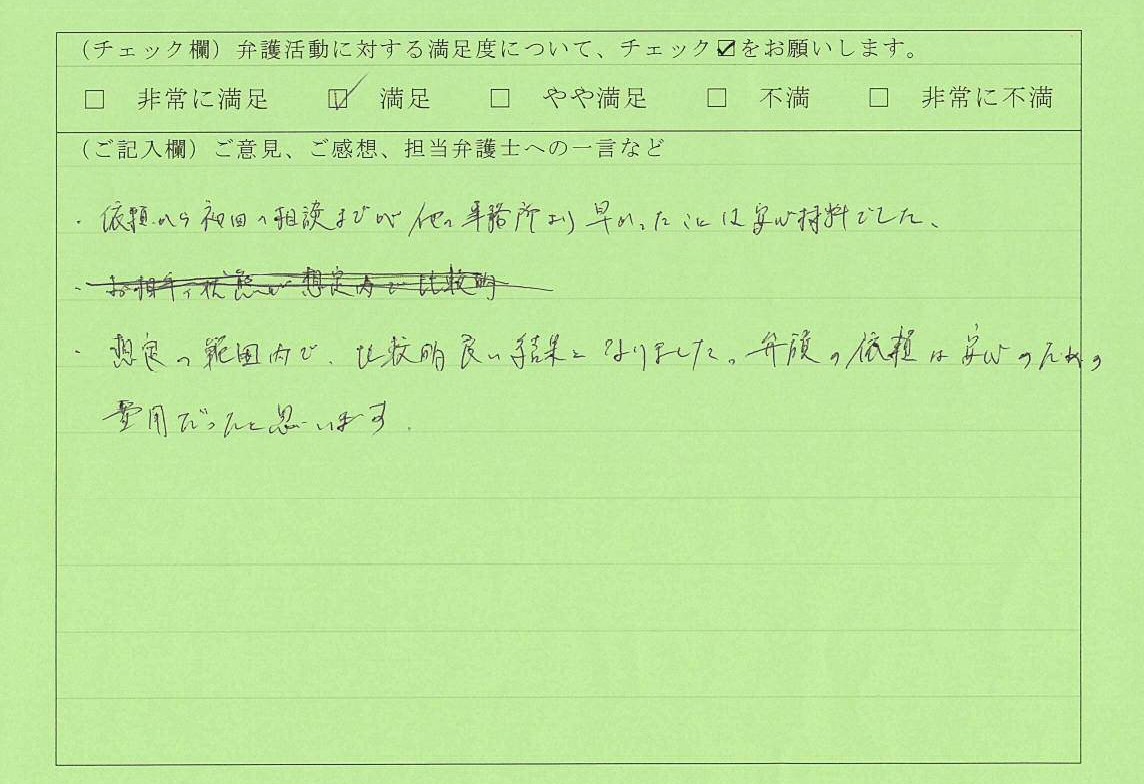 (チェック欄) 弁護活動に対する満足度について、チェック☑をお願いします。
□ 非常に満足 ☑ 満足 □ やや満足 □ 不満 □ 非常に不満
(ご記入欄) ご意見、ご感想、担当弁護士への一言など
・依頼から初回の相談までが他の事務所より早かったことは安心材料でした、
・お相手の状態が想定内で比較的
・想定の範囲内で、比較的良い結果となりました。弁護の依頼は安心のための
費用だったと思います.